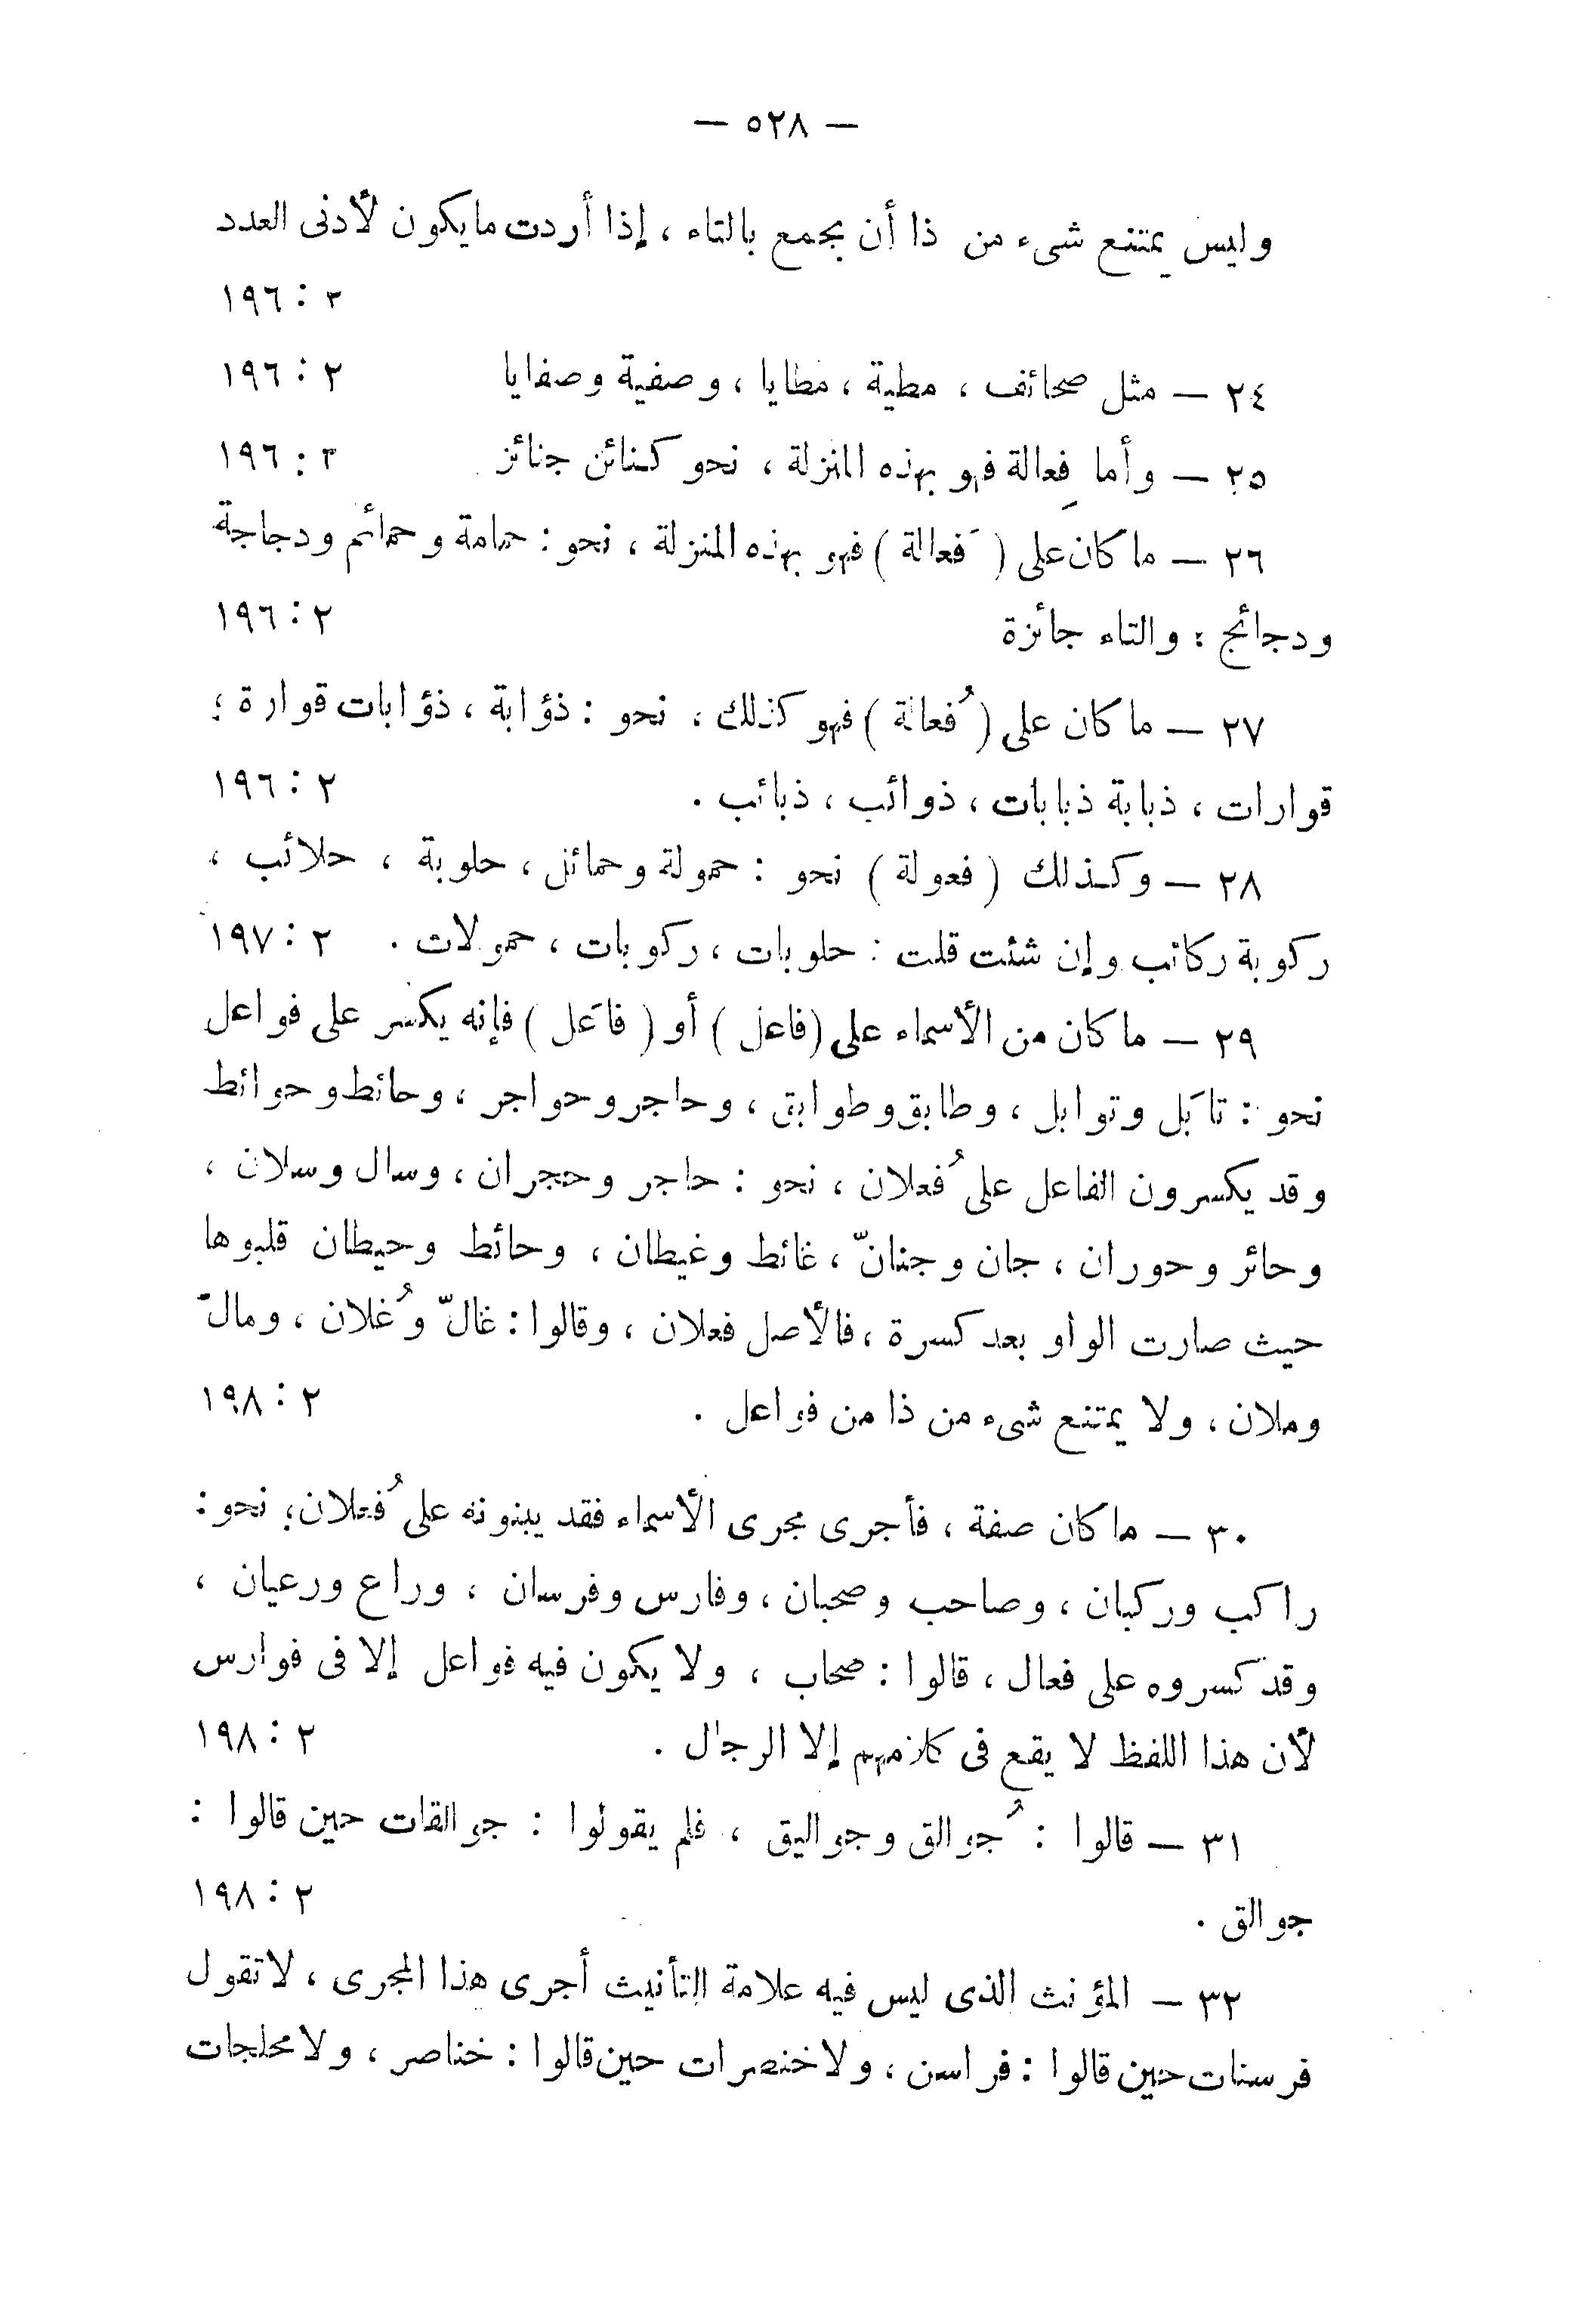 — ٥٢٨ —
وليس يمتنع شىء من ذا أن يجمع بالتاء ، إذا أردت ما يكون لأدنى العدد
٢ : ١٩٦
٢٤ — مثل صحائف ، مطية ، مطايا ، وصفية وصفايا ٢ : ١٩٦
٢٥ — وأما فِعالة فهو بهذه المنزلة ، نحو كنائن جنائز ٢ : ١٩٦
٢٦ — ما كان على ( فَعالة ) فهو بهذه المنزلة ، نحو : حمامة وحمائم ودجاجة
ودجائج ؛ والتاء جائزة ٢ : ١٩٦
٢٧ — ما كان على ( فُعالة ) فهو كذلك ، نحو : ذؤابة ، ذؤابات قوارة ؛
قوارات ، ذبابة ذبابات ، ذوائب ، ذبائب . ٢ : ١٩٦
٢٨ — وكذلك ( فعولة ) نحو : حمولة وحمائل ، حلوبة ، حلائب ،
ركوبة ركائب وإن شئت قلت : حلوبات ، ركوبات ، حمولات . ٢ : ١٩٧
٢٩ — ما كان من الأسماء على ( فاعل ) أو ( فاعَل ) فإنه يكسر على فواعل
نحو : تابَل وتوابل ، وطابق وطوابق ، وحاجر وحواجر ، وحائط وحوائط
وقد يكسرون الفاعل على فُعلان ، نحو : حاجر وحجران ، وسال وسلان ،
وحائر وحوران ، جان وجنانّ ، غائط وغيطان ، وحائط وحيطان قلبوها
حيث صارت الواو بعد كسرة ، فالأصل فعلان ، وقالوا : غالّ وغُلان ، ومالّ
وملان ، ولا يمتنع شىء من ذا من فواعل . ٢ : ١٩٨
٣٠ — ما كان صفة ، فأجرى مجرى الأسماء فقد يبنونه على فُعلان ؛ نحو :
راكب وركبان ، وصاحب وصحبان ، وفارس وفرسان ، وراع ورعيان ،
وقد كسروه على فعال ، قالوا : صحاب ، ولا يكون فيه فواعل إلا فى فوارس
لأن هذا اللفظ لا يقع فى كلامهم إلا الرجال . ٢ : ١٩٨
٣١ — قالوا : جُوالق وجواليق ، فلم يقولوا : جوالقات حين قالوا :
جوالق . ٢ : ١٩٨
٣٢ — المؤنث الذى ليس فيه علامة التأنيث أجرى هذا المجرى ، لا تقول
فرسنات حين قالوا : فراسن ، ولا خنصرات حين قالوا : خناصر ، ولا محلجات